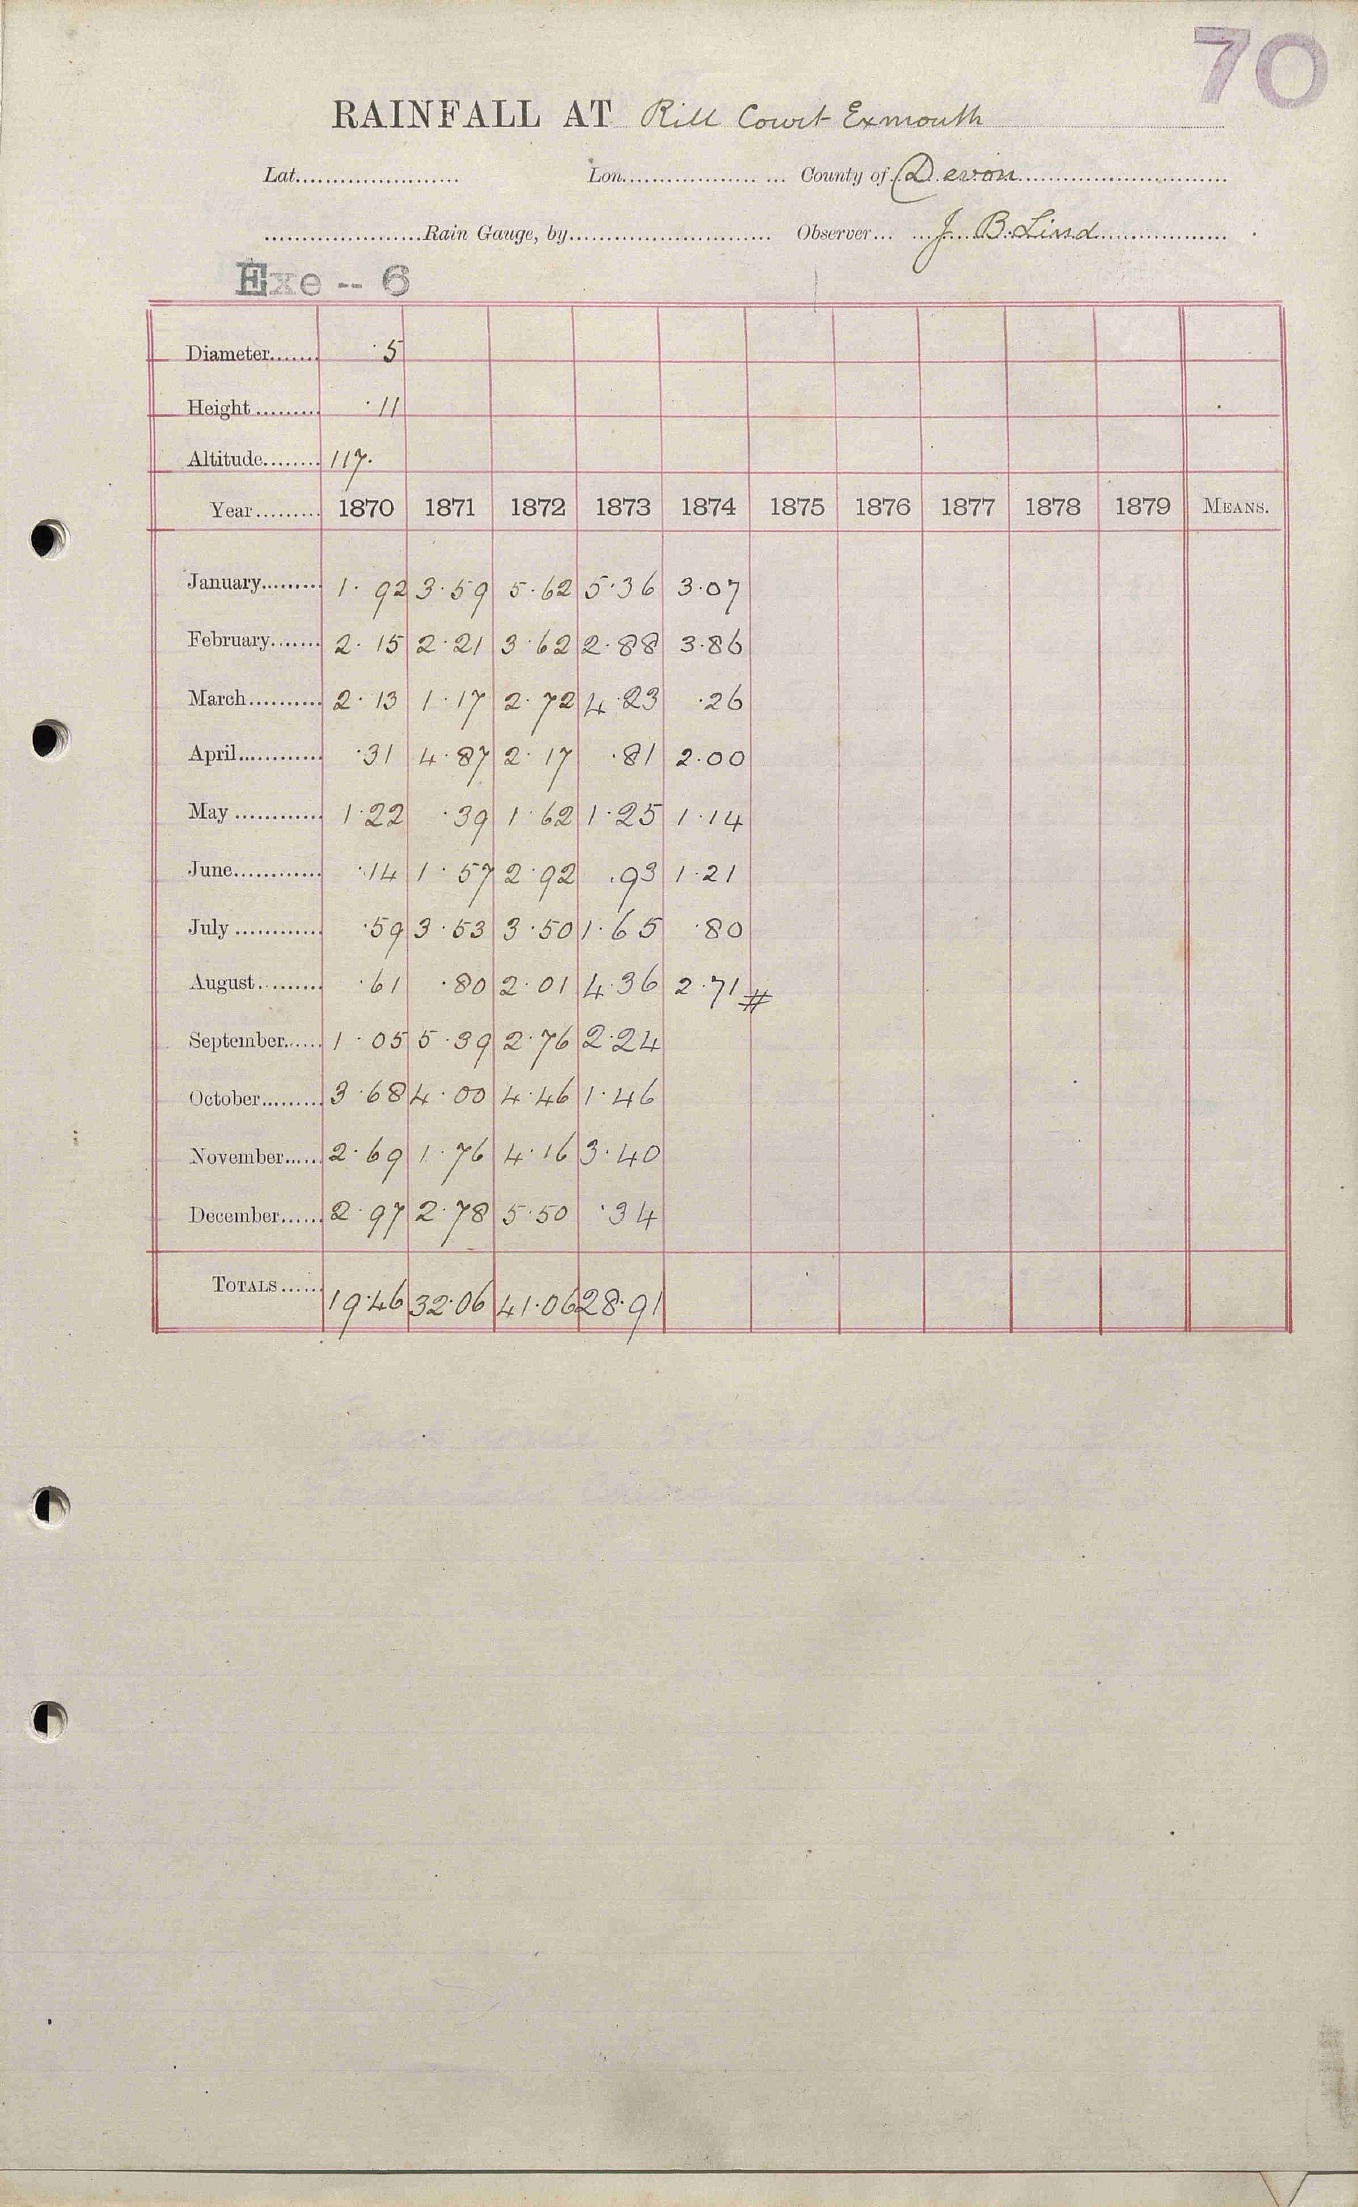 70
RAINFALL AT Rill Court Exmouth
Lat. Lon. County of Devon
Rain Gauge, by Observer J B Lind
Exe -- 6
Diameter ·5
Height ·11
Altitude 117.
Year 1870 1871 1872 1873 1874 1875 1876 1877 1878 1879 MEANS.
January 1.92 3.59 5.62 5.36 3.07
February 2.15 2.21 3.62 2.88 3.86
March 2.13 1.17 2.72 4.23 .26
April .31 4.87 2.17 .81 2.00
May 1.22 .39 1.62 1.25 1.14
June .14 1.57 2.92 .93 1.21
July .59 3.53 3.50 1.65 .80
August .61 .80 2.01 4.36 2.71 #
September 1.05 5.39 2.76 2.24
October 3.68 4.00 4.46 1.46
November 2.69 1.76 4.16 3.40
December 2.97 2.78 5.50 .34
TOTALS 19.46 32.06 41.06 28.91